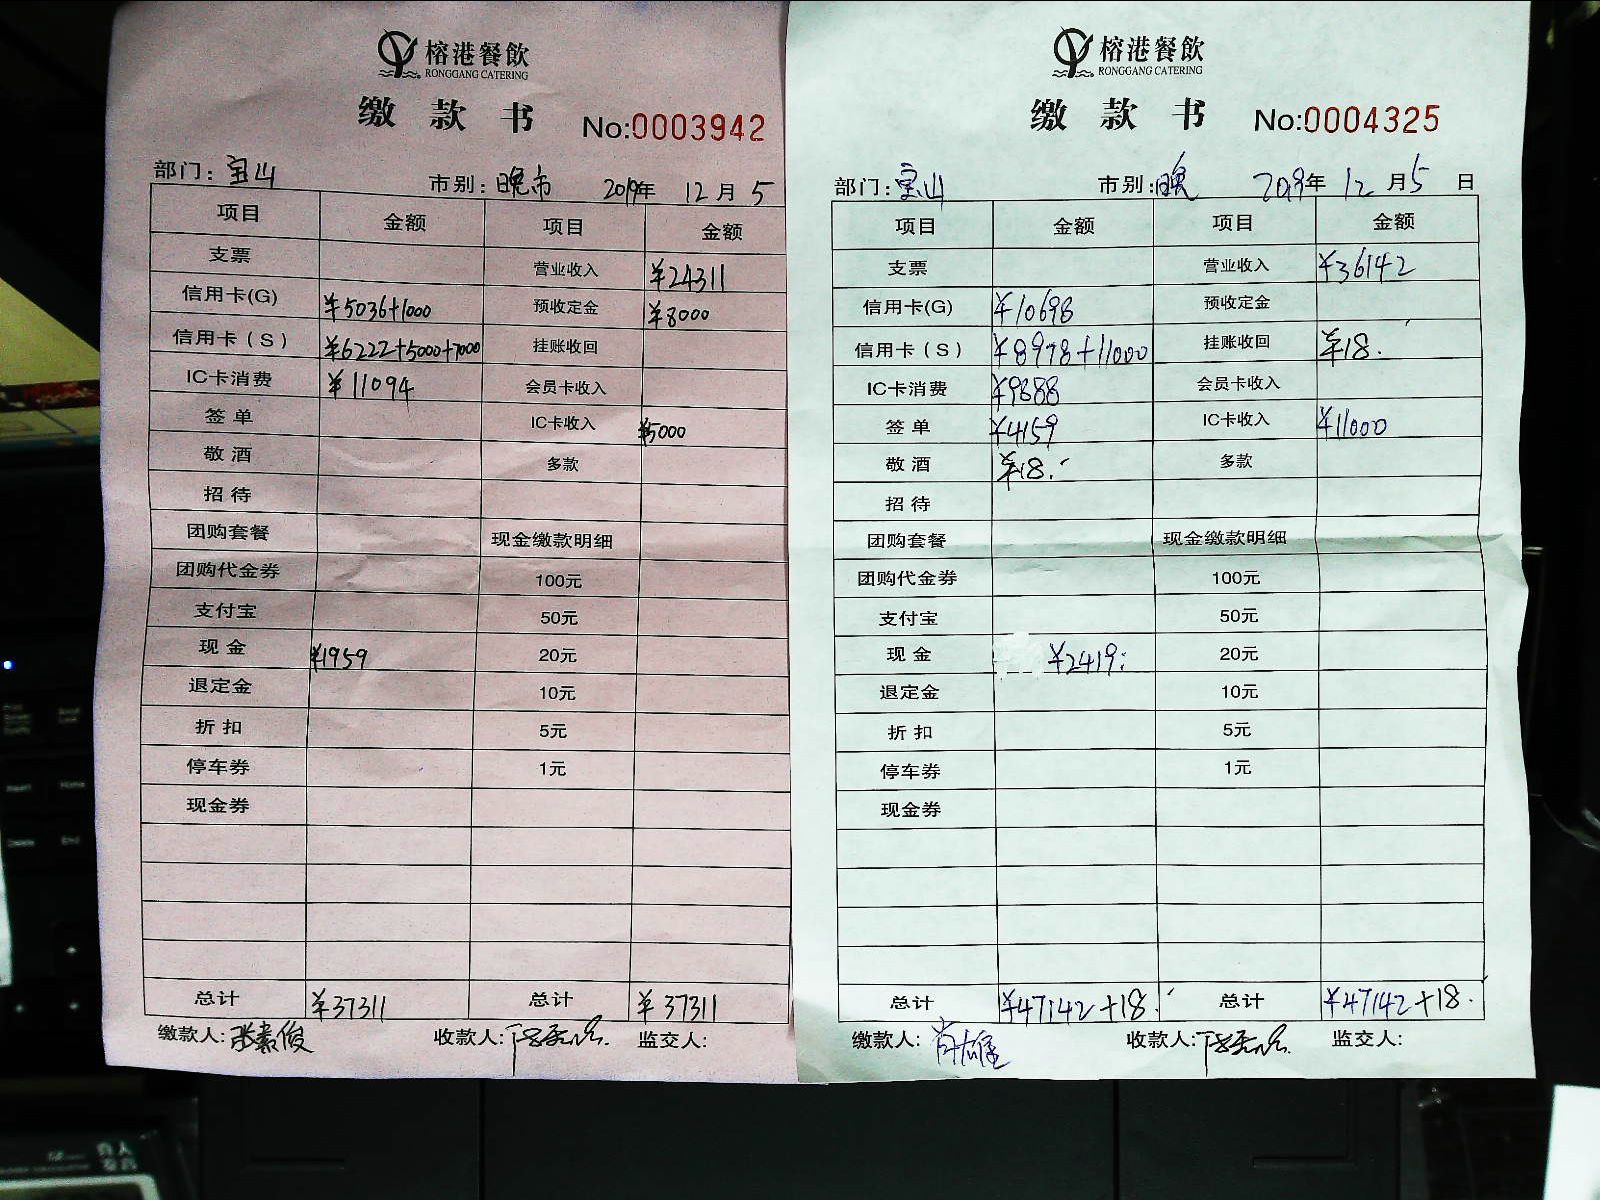 榕港餐飲
RONGGANG CATERING
缴款书 No:0003942
部门：宝山 市别：晚市 2019年 12月 5
项目 金额 项目 金额
支票 营业收入 ¥24311
信用卡(G) ¥5036+1000 预收定金 ¥8000
信用卡（S） ¥6222+5000+7000 挂账收回
IC卡消费 ¥11094 会员卡收入
签单 IC卡收入 ¥5000
敬酒 多款
招待
团购套餐 现金缴款明细
团购代金券 100元
支付宝 50元
现金 ¥1959 20元
退定金 10元
折扣 5元
停车券 1元
现金券
总计 ¥37311 总计 ¥37311
缴款人: 张素俊 收款人: 监交人:
榕港餐飲
RONGGANG CATERING
缴款书 No:0004325
部门：宝山 市别：晚 2019年 12月 5日
项目 金额 项目 金额
支票 营业收入 ¥36142
信用卡(G) ¥10698 预收定金
信用卡（S） ¥8978+11000 挂账收回 ¥18.
IC卡消费 ¥9888 会员卡收入
签单 ¥4159 IC卡收入 ¥11000
敬酒 ¥18. 多款
招待
团购套餐 现金缴款明细
团购代金券 100元
支付宝 50元
现金 ¥2419 20元
退定金 10元
折扣 5元
停车券 1元
现金券
总计 ¥47142+18. 总计 ¥47142+18.
缴款人: 肖雄 收款人: 监交人: